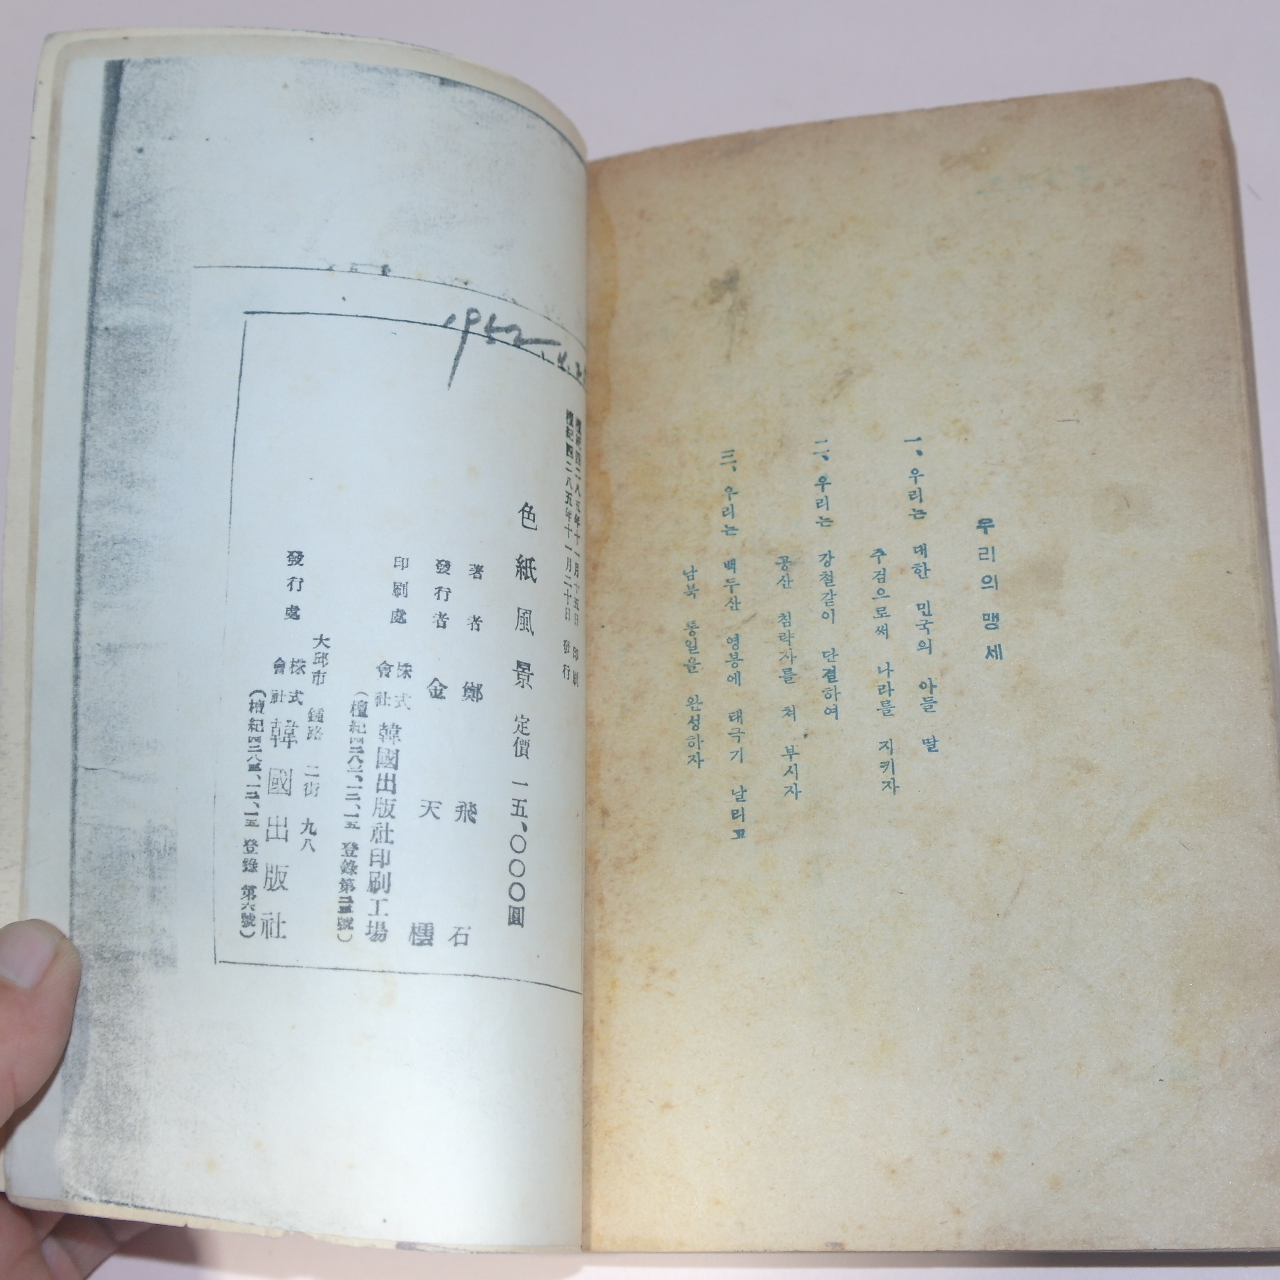 1952
檀紀四二八五年十一月十五日 印刷
檀紀四二八五年十一月二十日 發行
色紙風景 定價 一五、〇〇〇圓
著者 鄭飛石
發行者 金天
印刷處 株式會社 韓國出版社印刷工場
大邱市 鍾路 二街 九八
發行處 株式會社 韓國出版社
우리의 맹세
一、우리는 대한 민국의 아들 딸
주검으로써 나라를 지키자
二、우리는 강철같이 단결하여
공산 침략자를 처 부시자
三、우리는 백두산 영봉에 태극기 날리고
남북 통일을 완성하자